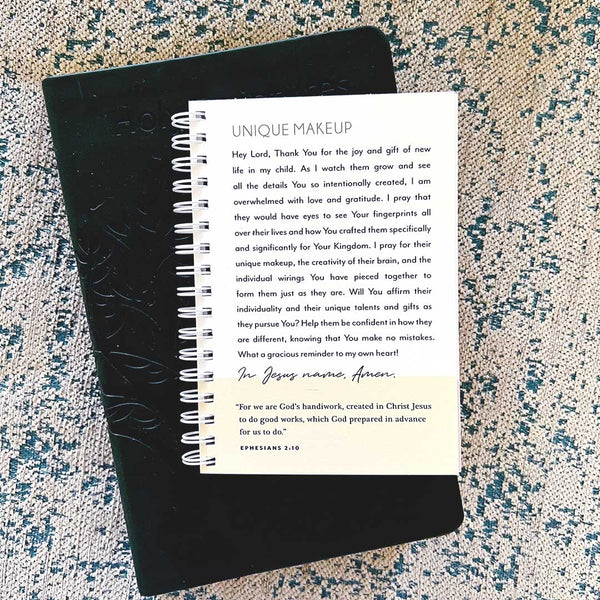 Ho
UNIQUE MAKEUP
Hey Lord, Thank You for the joy and gift of new
life in my child. As I watch them grow and see
all the details You so intentionally created, I am
overwhelmed with love and gratitude. I pray that
they would have eyes to see Your fingerprints all
over their lives and how You crafted them specifically
and significantly for Your Kingdom. I pray for their
unique makeup, the creativity of their brain, and the
individual wirings You have pieced together to
form them just as they are. Will You affirm their
individuality and their unique talents and gifts as
they pursue You? Help them be confident in how they
are different, knowing that You make no mistakes.
What a gracious reminder to my own heart!
In Jesus name, Amen.
“For we are God’s handiwork, created in Christ Jesus
to do good works, which God prepared in advance
for us to do.”
EPHESIANS 2:10